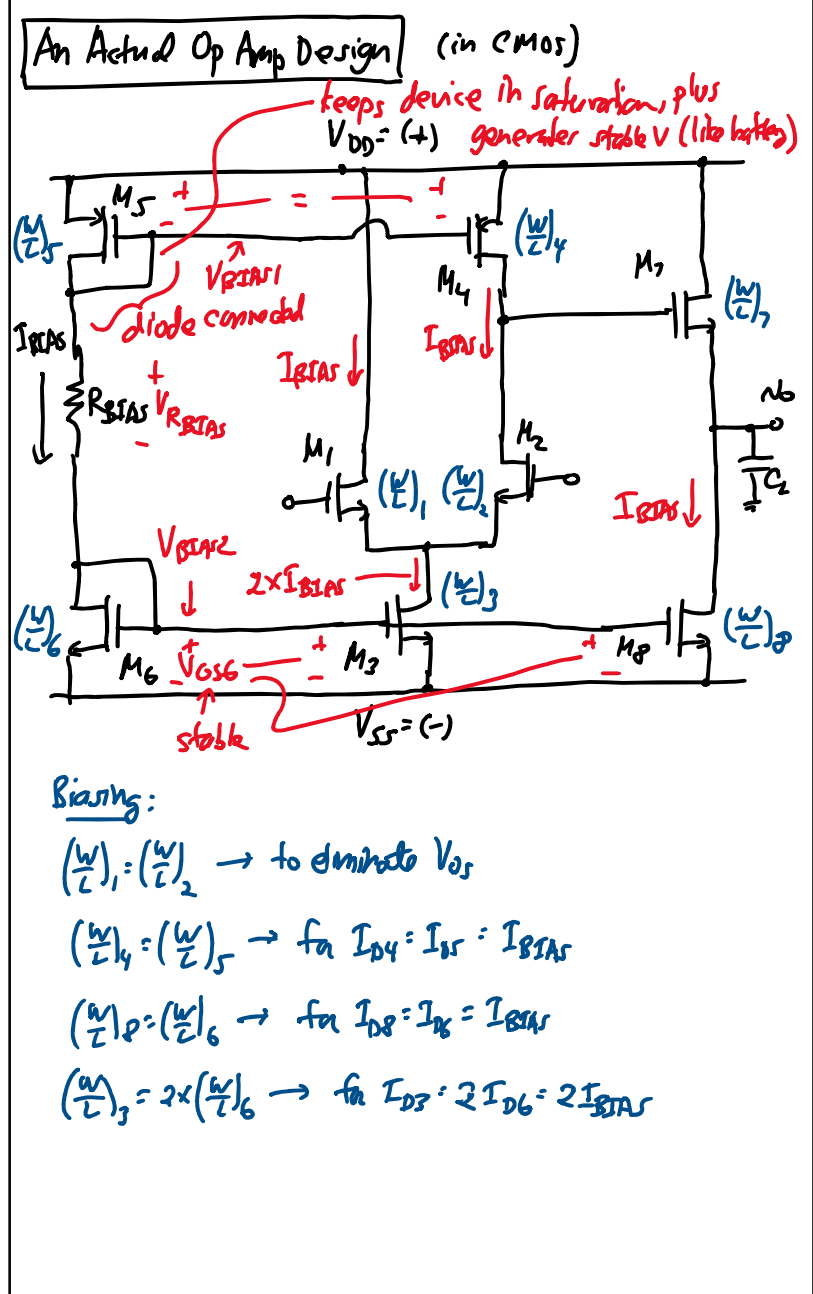 An Actual Op Amp Design (in CMOS)
keeps device in saturation, plus
generates stable V (like battery)
VDD = (+)
M5 + - = + -
(W/L)5
(W/L)4
VBIAS1
M4
M7
(W/L)7
diode connected
IBIAS
IBIAS
IBIAS
+
RBIAS VRBIAS
-
M1
M2
vo
C2
(W/L)1 (W/L)2
IBIAS
VBIAS2
2×IBIAS
(W/L)3
(W/L)6
(W/L)8
M6
+ VGS6 -
M3
+ -
M8
+ -
stable
VSS = (-)
Biasing:
(W/L)1 = (W/L)2 → to eliminate Vos
(W/L)4 = (W/L)5 → for ID4 = ID5 = IBIAS
(W/L)8 = (W/L)6 → for ID8 = ID6 = IBIAS
(W/L)3 = 2×(W/L)6 → for ID3 = 2ID6 = 2IBIAS